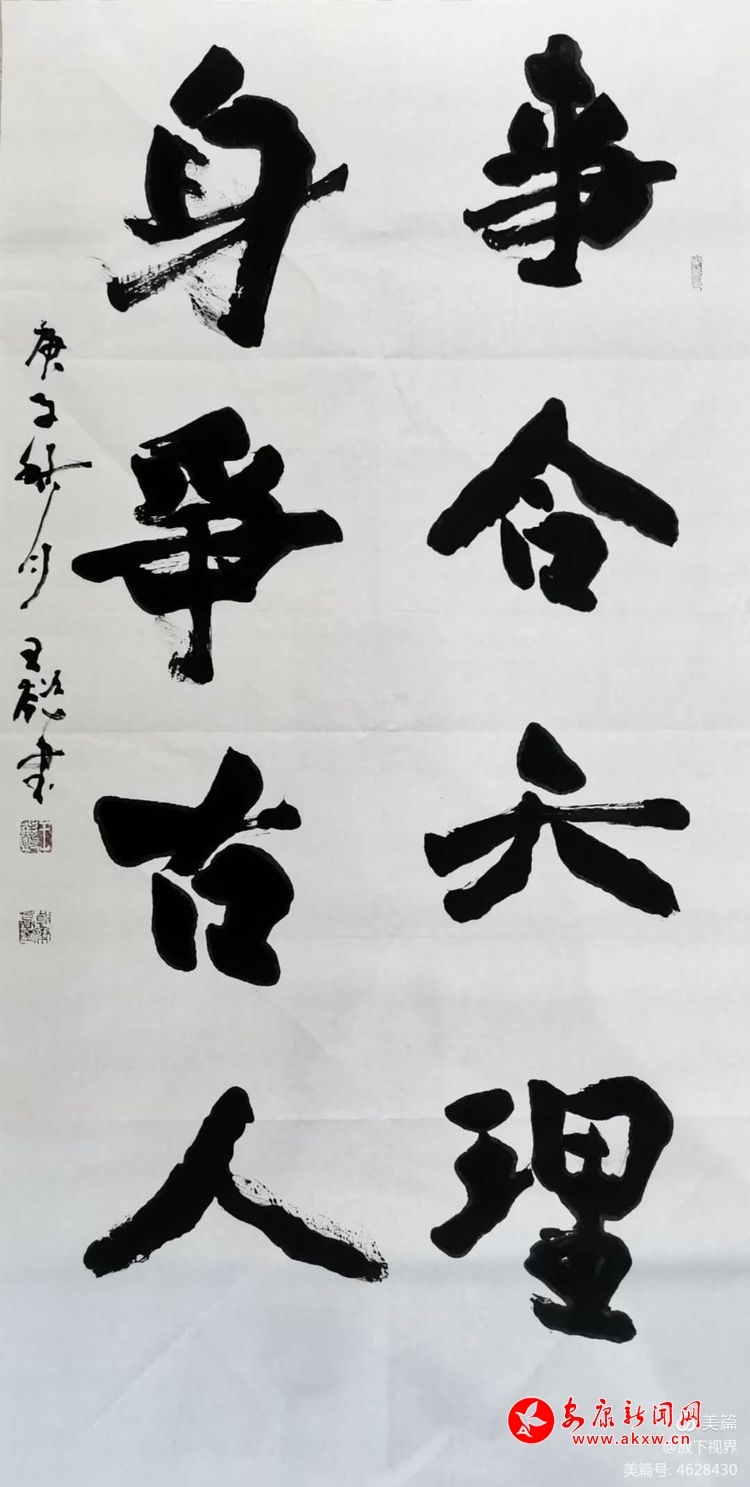 事合天理
身爭古人
庚子秋月 王 书
安康新闻网
www.akxw.cn
美篇
@放下视界
美篇号: 4628430